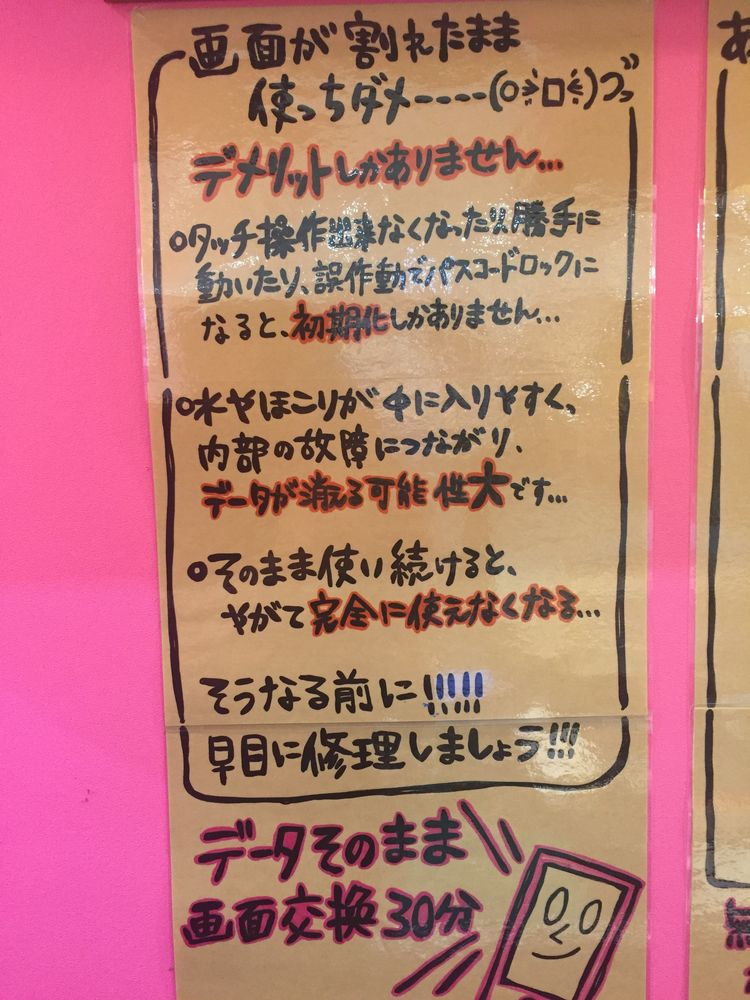 画面が割れたまま
使っちダメーーーー(ｏ>ロ<)つ゛
デメリットしかありません…
○タッチ操作出来なくなったり、勝手に
動いたり、誤作動でパスコードロックに
なると、初期化しかありません…
○水やほこりが中に入りやすく、
内部の故障につながり、
データが消える可能性大です…
○そのまま使い続けると、
やがて完全に使えなくなる…
そうなる前に!!!!!!
早目に修理しましょう!!!
データそのまま
画面交換30分